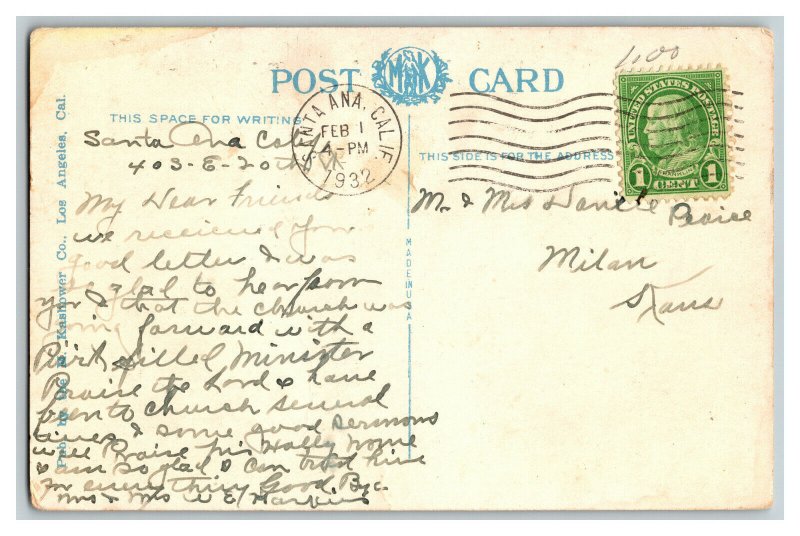 1.00
POST CARD
MK
THIS SPACE FOR WRITING
SANTA ANA, CALIF.
FEB 1
4-PM
1932
UNITED STATES POSTAGE
FRANKLIN
1 CENT 1
THIS SIDE IS FOR THE ADDRESS
Santa Ana
403-E-20th
My Dear Friends
we received your
good letter & was
so glad to hear from
you & that the church was
going forward with a
filled Minister
Praise the Lord & have
been to church several
times & some good sermons
will Praise his Holly Nome
& am so glad I can trust hime
for everything Good By
Mr & Mrs W E Harkins
Mr. & Mrs Daniel Peaice
Milan
Kans
MADE IN U.S.A.
Pub. by M. Kashower Co., Los Angeles, Cal.